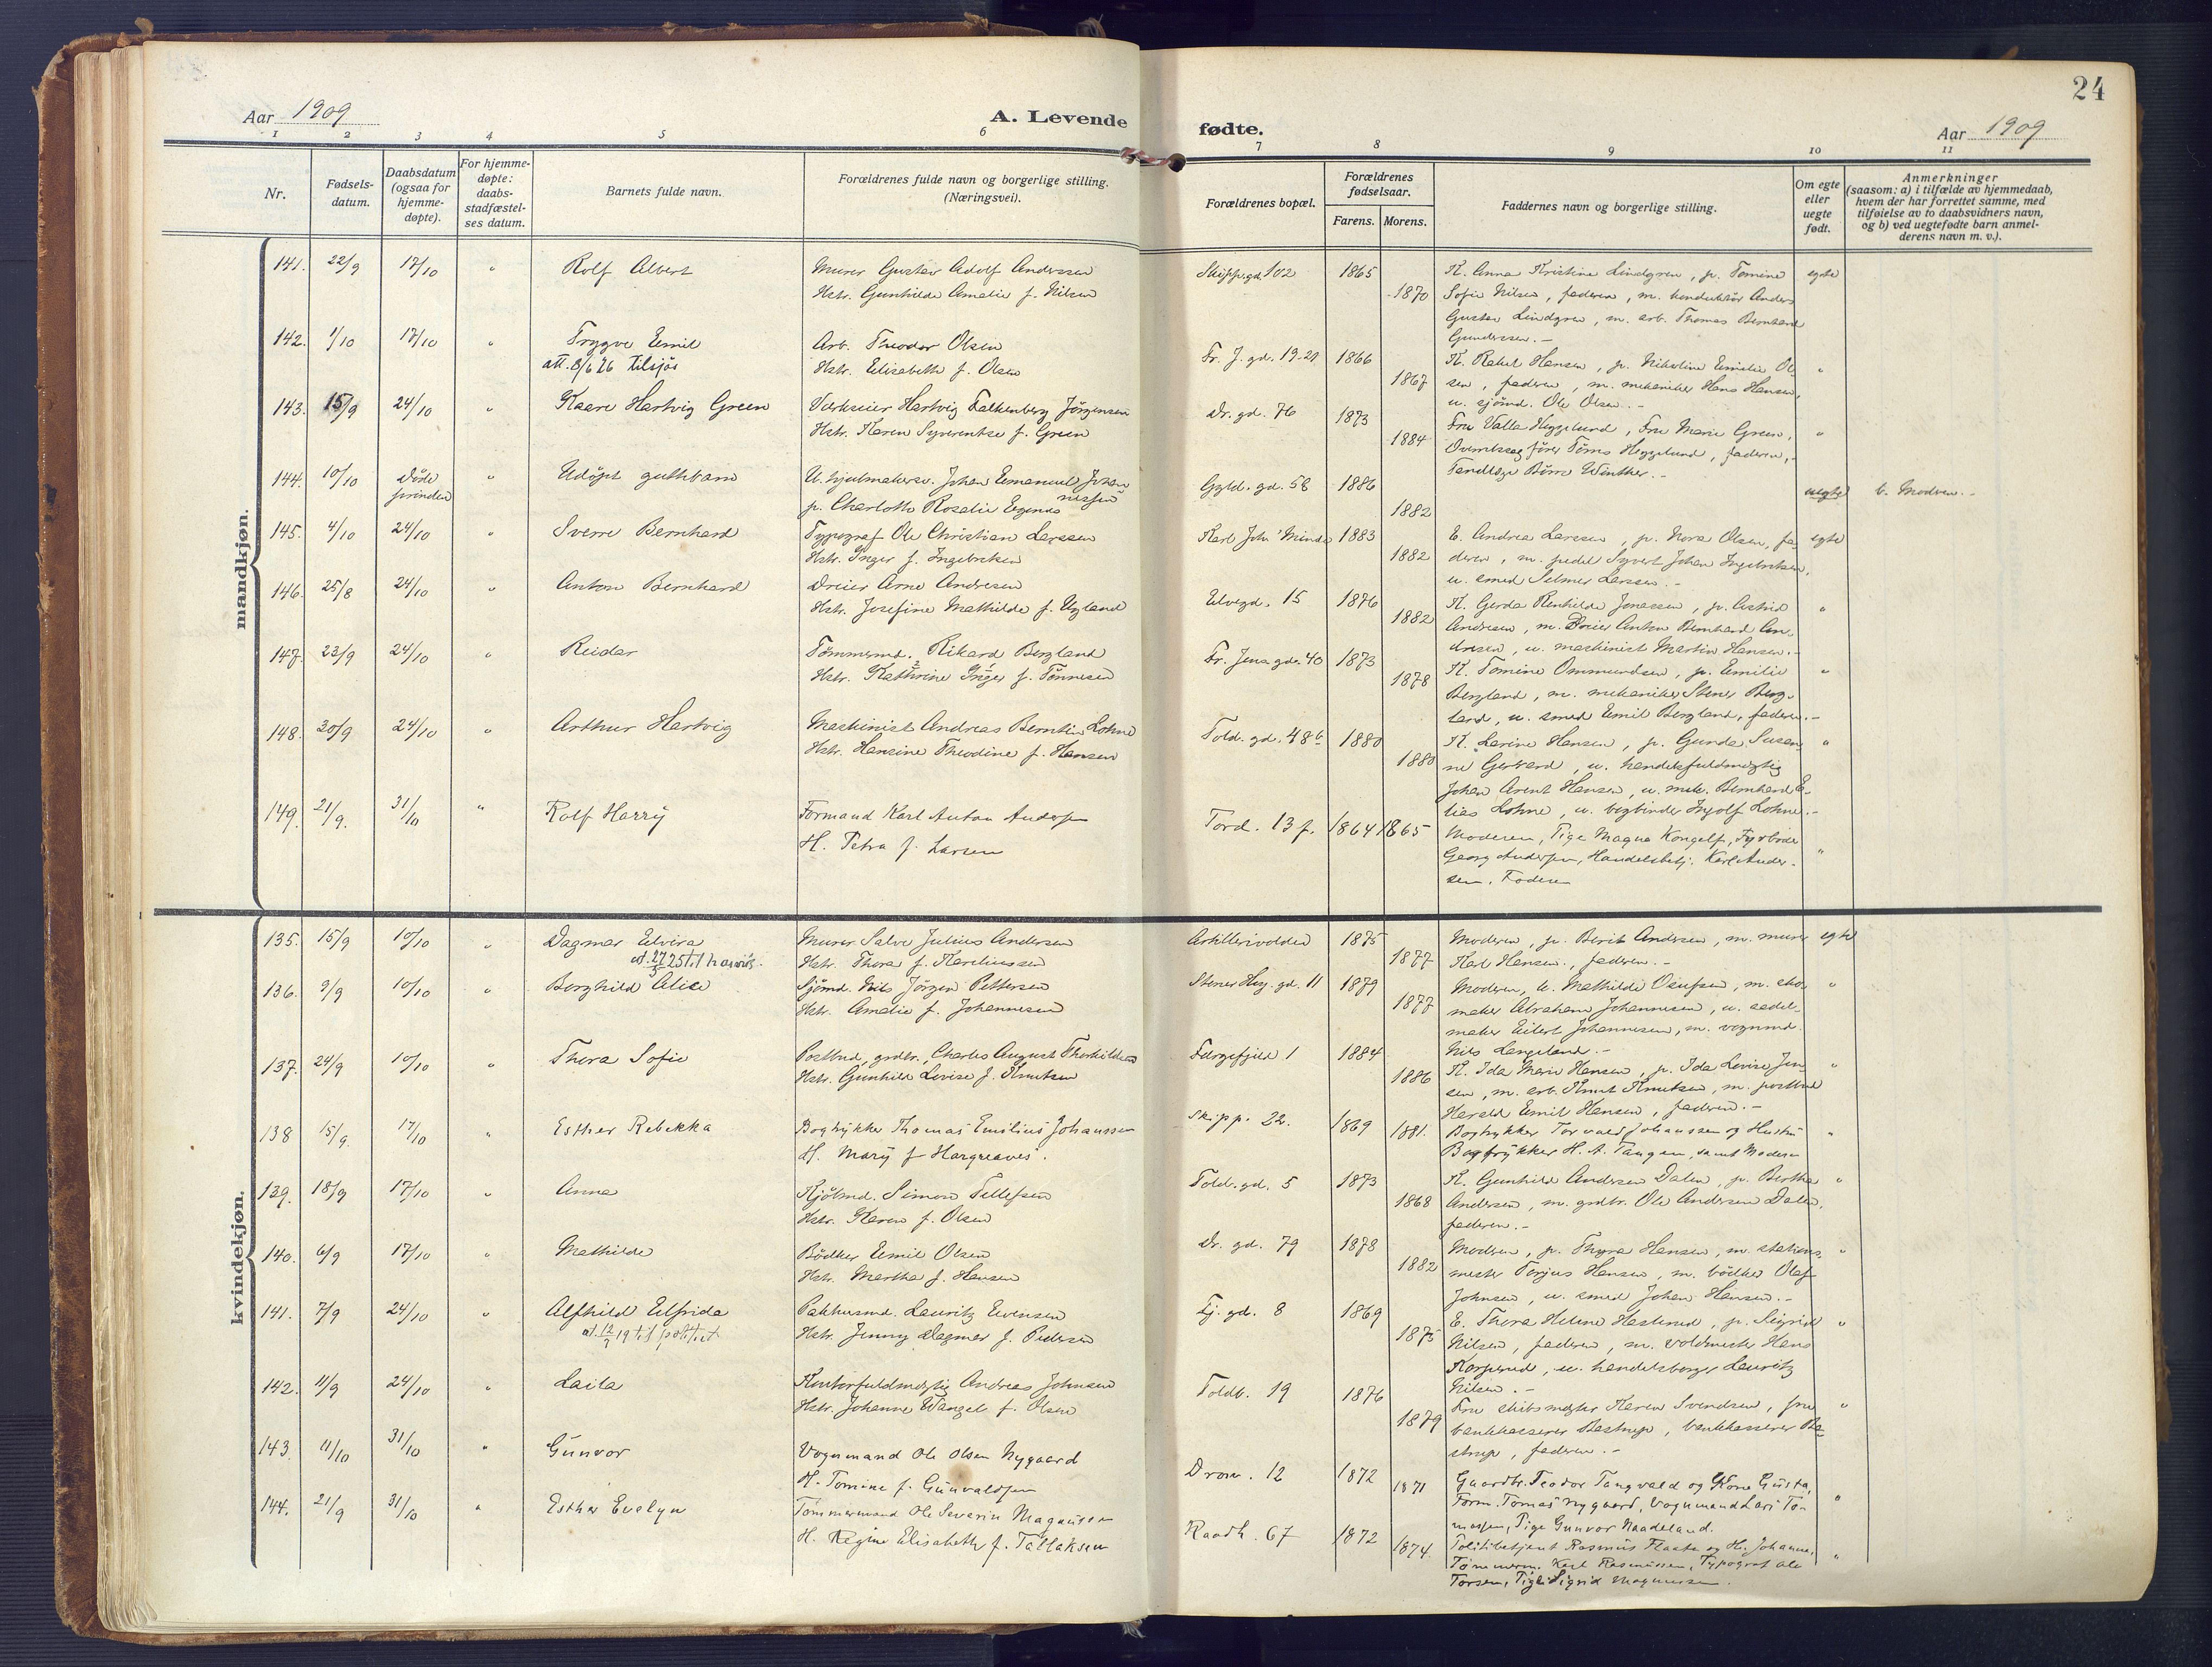 24
Aar 1909
A. Levende fødte.
Aar 1909
1 2 3 4 5 6 7 8 9 10 11
Nr.
Fødsels-
datum.
Daabsdatum
(ogsaa for
hjemme-
døpte).
For hjemme-
døpte:
daabs-
stadfæstel-
ses datum.
Barnets fulde navn.
Forældrenes fulde navn og borgerlige stilling.
(Næringsvei).
Forældrenes bopæl.
Forældrenes
fødselsaar.
Farens. Morens.
Faddernes navn og borgerlige stilling.
Om egte
eller
uegte
født.
Anmerkninger
(saasom: a) i tilfælde av hjemmedaab,
hvem der har forrettet samme, med
tilføielse av to daabsvidners navn,
og b) ved uegtefødte barn anmel-
derens navn m. v.).
mandkjøn.
141. 22/9 17/10 " Rolf Albert
Murer Gustav Adolf Anderssen
Hstr. Gunhilde Amalie f. Nilsen
Skippgd. 102 1865 1870
K. Anna Kristine Lindgren, p. Tomine
Sofie Nilsen, faderen, m. konduktör Anders
Gustav Lindgren, m. arb. Thomas Bernhard
Gundersen.-
egte
142. 1/10 17/10 " Trygve Emil
att. 8/6 26 tilsjøs
Arb. Theodor Olsen
Hstr. Elisabeth f. Olsen
Fr. J. gd. 19-21 1866 1867
K. Rakel Hansen, p. Nikoline Emilie Ol-
sen, faderen, m. mekaniker Hans Hansen,
u. sjömd. Ole Olsen.-
"
143. 15/9 24/10 " Kaare Hartvig Green
Værkseier Hartvig Falkenberg Jörgensen
Hstr. Karen Syverentse f. Green
Dr. gd. 76 1873 1884
Fru Valla Heggelund, Fru Marie Green,
Overretssagförer Töms Heggelund, faderen,
Tandlæge Börre Winther.-
"
144. 10/10 Döde forinden " Udöpt guttbarn
U. hjulmakersv. Johan Emanuel Johan
nessen
p. Charlotte Rosalie
Gyld. gd. 58 1886 1882
uegte b. Modren.-
145. 4/10 24/10 " Sverre Bernhard
Typograf Ole Christian Larssen
Hstr. Inger f. Ingebretsen
Karl Joh. Minde 1883 1882
E. Andrea Larssen, p. Nora Olsen, fa-
deren, m. pedel Syvert Johan Ingebretsen,
u. smed Selmer Larssen.-
egte
146. 25/8 24/10 " Anton Bernhard
Dreier Arne Andresen
Hstr. Josefine Mathilde f. Ugland
Elvegd. 15 1876 1882
K. Gerda Renhilde Jonassen, p. Astrid
Andresen, m. Dreier Anton Bernhard An-
dresen, u. maskinist Martin Hansen.-
"
147. 23/9 24/10 " Reidar
Tömmermd. Rikard Bergland
Hstr. Kathrine Inger f. Tönnesen
Fr. Jena gde. 40 1873 1878
K. Tomine Ommundsen, p. Emilie
Bergland, m. mekaniker Stener Berg-
land, u. smed Emil Bergland, faderen.-
"
148. 30/9 24/10 " Arthur Hartvig
Maskinist Andreas Berntin Lohne
Hstr. Hansine Theodine f. Hansen
Told. gd. 48 b 1880 1880
K. Larine Hansen, p. Gunda Susan-
ne Gerhard, u. handelsfuldmægtig
Johan Arent Hansen, u. mek. Bernhard E-
lias Lohne, u. bogbinder Ingolf Lohne.-
"
149. 21/9. 31/10 " Rolf Harry
Formand Karl Anton Andersen
H. Petra f. Larsen
Tord. 13 f. 1864 1865
Moderen, Pige Magna Kongelf, Fyrböder
Georg Andersen, Handelsbetj. Karl Ander-
sen, Faderen
"
kvindekjøn.
135. 15/9 10/10 " Dagmar Elvira
Murer Salve Julius Andersen
Hstr. Thora f. Kareliussen
Artillerivolden 1875 1877
Moderen, p. Berit Andersen, m. murer
Karl Hansen, faderen.-
egte
136. 9/9 10/10 " Borghild Alice
Sjömd. Nils Jörgen Pettersen
Hstr. Amalie f. Johannesen
Stener Heg. gd. 11 1879 1877
Moderen, K. Mathilde Olufsen, m. sko-
maker Abraham Johannesen, u. sadel-
maker Eilert Johannesen, m. vognmd.
Nils Langeland.-
"
137. 24/9 10/10 " Thora Sofie
Postbud, grdbr. Charles August Thorkildsen
Hstr. Gunhild Lovise f. Knutsen
Færgefjeld 1 1884 1886
K. Ida Marie Hansen, p. Ida Lovise Jen-
sen, m. arb. Knut Knutsen, m. postbud
Harald Emil Hansen, faderen.-
"
138 15/9. 17/10 " Esther Rebekka
Bogtrykker Thomas Emilius Johanssen
H. Mary f Hargreaves.
Skipp. 22. 1869 1881.
Bogtrykker Torvald Johanssen og Hustru
Bogtrykker H. A. Tangen, samt Moderen
"
139. 18/9 17/10 " Anna
Kjölmd. Simon Tellefsen
Hstr. Karen f. Olsen
Told. gd. 5 1873 1868
K. Gunhild Andersen Dalen, p. Bertha
Andersen, m. grdbr. Ole Andersen Dalen,
faderen.-
"
140. 6/9 17/10 " Mathilde
Bödker Emil Olsen
Hstr. Martha f. Hansen
Dr. gd. 79 1878 1882
Modren, p. Thyra Hansen, m. stations-
mester Torjus Hansen, m. bödker Olaf
Johnsen, u. smed Johan Hansen.-
"
141. 7/9 24/10 " Alfhild Elfrida
Pakhusmd. Lauritz Evensen
Hstr. Jenny Dagmar f. Pedersen
Tj. gd. 8 1869 1875
E. Thora Helene Hasterud, p. Sigrid
Nilsen, faderen, m. voldmester Hans
Korperud, u. handelsborger Lauritz
Nilsen.-
"
142. 11/9 24/10 " Laila
Kontorfuldmægtig Andreas Johnsen
Hstr. Johanne Wangel f. Olsen
Toldb. 19 1876 1879
Fru skibsmægler Karen Svendsen, fru
bankkasserer Bastrup, bankkasserer Ba-
strup, faderen.-
"
143. 11/10 31/10 " Gunvor
Vognmand Ole Olsen Nygaard
H. Tomine f. Gunvaldsen
Dron. 12 1872 1871
Gaardbr. Teodor Tangvald og Kone Gusta,
Form. Tomas Nygaard, Vognmand Lars To-
massen, Pige Gunvor Naadeland.
"
144. 21/9 31/10 " Esther Evelyn
Tömmermand Ole Severin Magnussen
H. Regine Elisabeth f. Tallaksen
Raadh. 67 1872 1874.
Politibetjent Rasmus Flaate og H. Johanne,
Tömmerm. Karl Rasmussen, Typograf Ole
Torsen, Pige Sigrid Magnussen.
"